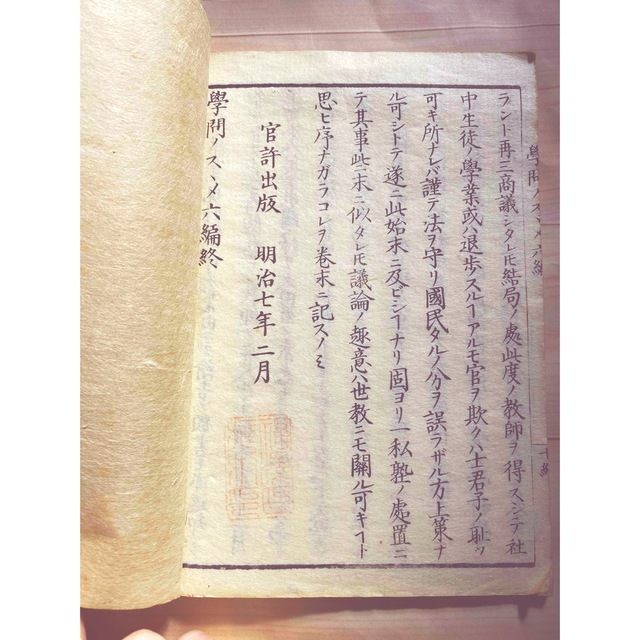 ラント再三商議シタレㇳ゙モ結局ノ處此度ノ教師ヲ得スシテ社
中生徒ノ學業或ハ退歩スルヿアルモ官ヲ欺クハ士君子ノ耻ツ
可キ所ナレバ謹テ法ヲ守リ國民タルノ分ヲ誤ラザル方上策ナ
ル可シトテ遂ニ此始末ニ及ビシヿナリ固ヨリ一私塾ノ處置ニ
テ其事些末ニ似タレㇳ゙モ議論ノ趣意ハ世教ニモ關ル可キヿト
思ヒ序ナガラコレヲ卷末ニ記スノミ
官許出版 明治七年二月
學問ノスヽメ六編終